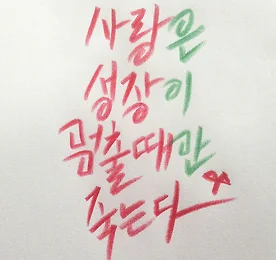 사랑은
성장이
멈출때만
죽는다